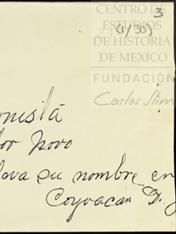 3
(1/30)
CENTRO DE
ESTUDIOS
DE HISTORIA
DE MEXICO
FUNDACIÓN
Carlos Slim
onista
dor Novo
lova su nombre en
Coyoacan D.